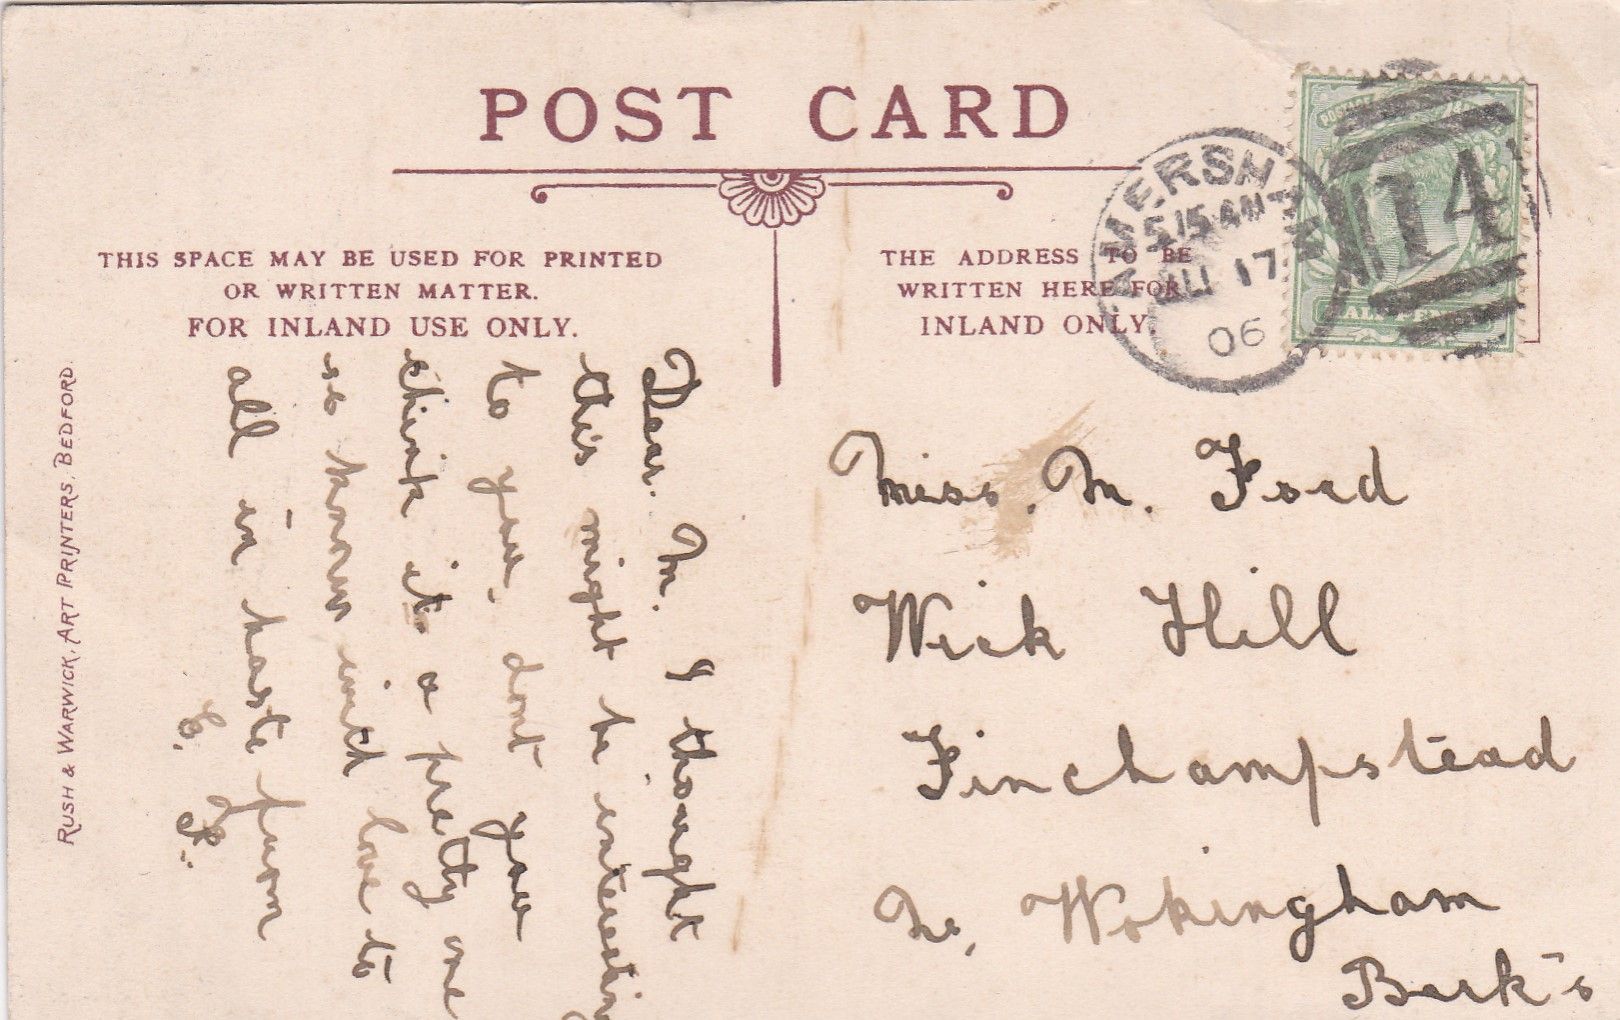 POST CARD
THIS SPACE MAY BE USED FOR PRINTED
OR WRITTEN MATTER.
FOR INLAND USE ONLY.
THE ADDRESS TO BE
WRITTEN HERE FOR
INLAND ONLY.
AMERSHAM
5 15 AM
JU 17
06
14
POSTAGE
HALF PENNY
Dear. M. I thought
this might be interesting
to you, dont you
think it a pretty one
so know with love to
all in haste from
E. K.
Miss. M. Ford
Wick Hill
Finchampstead
Nr, Wokingham
Berk's
RUSH & WARWICK, ART PRINTERS, BEDFORD.